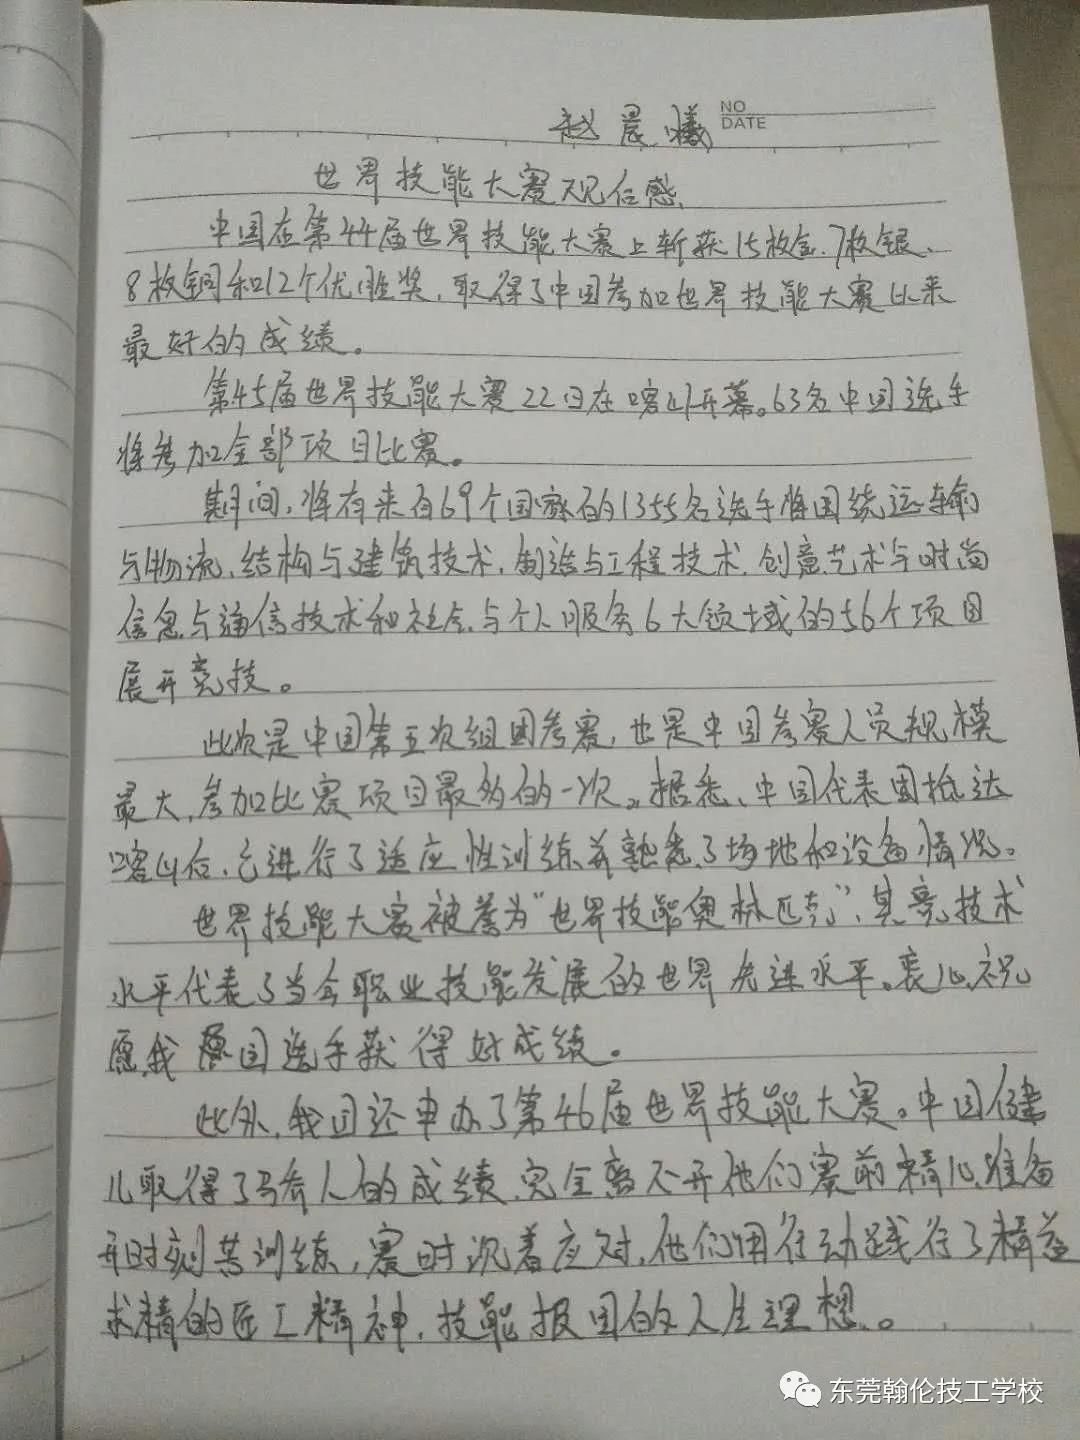 赵晨曦
NO
DATE
世界技能大赛观后感
中国在第44届世界技能大赛上斩获15枚金、7枚银、
8枚铜和12个优胜奖，取得了中国参加世界技能大赛比来
最好的成绩。
第45届世界技能大赛22日在喀山开幕。63名中国选手
将参加全部项目比赛。
期间，将有来自69个国家的1355名选手将围绕运输
与物流、结构与建筑技术、制造与工程技术、创意艺术与时尚
信息与通信技术和社会与个人服务6大领域的56个项目
展开竞技。
此次是中国第五次组团参赛，也是中国参赛人员规模
最大，参加比赛项目最多的一次。据悉、中国代表团抵达
喀山后，已进行了适应性训练并熟悉了场地和设备情况。
世界技能大赛被誉为“世界技能奥林匹克”，其竞技术
水平代表了当今职业技能发展的世界先进水平。衷心祝
愿我国选手获得好成绩。
此外，我国还申办了第46届世界技能大赛。中国健
儿取得了的成绩，完全离不开他们赛前精心准备
时刻苦训练，赛时沉着应对，他们用行动践行了精益
求精的匠工精神，技能报国的人生理想。
东莞翰伦技工学校